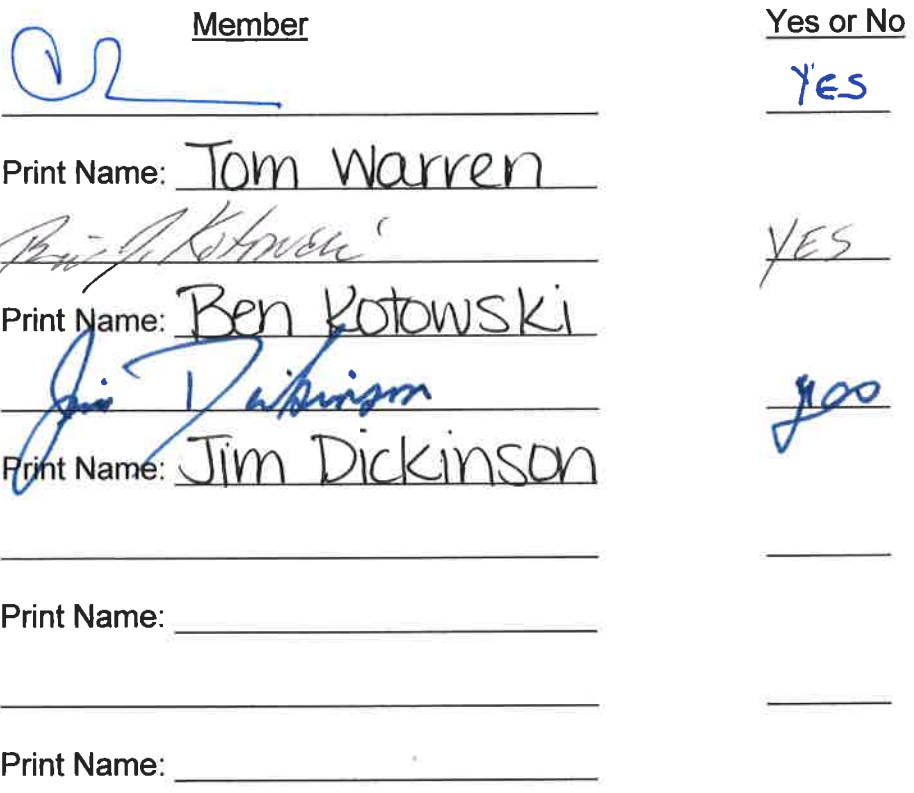 Member Yes or No
YES
Print Name: Tom Warren
Kotowski YES
Print Name: Ben Kotowski
Jim Dickinson yes
Print Name: Jim Dickinson
Print Name:
Print Name: